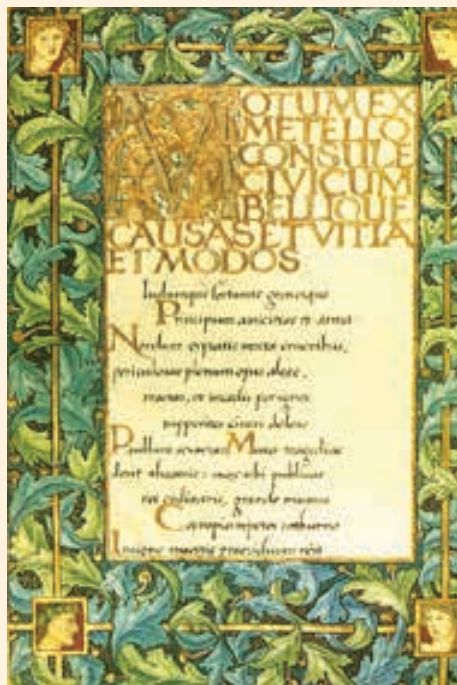 MOTUM EX
METELLO
CONSULE
CIVICUM
BELLIQUE
CAUSAS ET VITIA
ET MODOS
Ludumque fortunae gravesque
Principum amicitias et arma
Nondum expiatis uncta cruoribus,
periculosae plenum opus aleae,
tractas, et incedis per ignes
suppositos cineri doloso
Paullum severae Musa tragediae
desit theatris: mox ubi publicas
res ordinaris, grande munus
Cecropio repetes cothurno
Insigne maestis praesidium reis